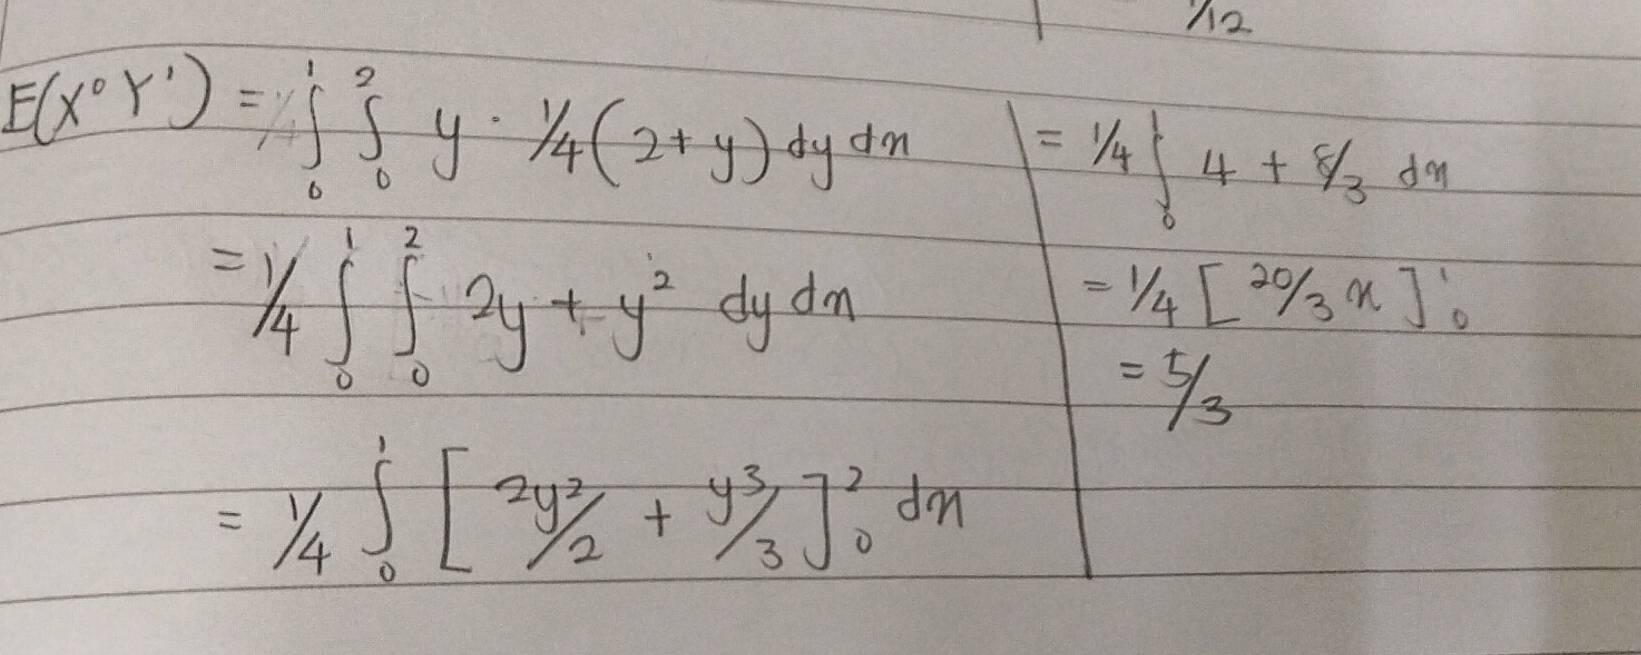 1/12
E(X⁰Y¹) = ∫₀¹ ∫₀² y · 1/4 (2 + y) dy dx
= 1/4 ∫₀¹ ∫₀² 2y + y² dy dx
= 1/4 ∫₀¹ [2y²/2 + y³/3]₀² dx
= 1/4 ∫₀¹ 4 + 8/3 dx
= 1/4 [20/3 x]₀¹
= 5/3